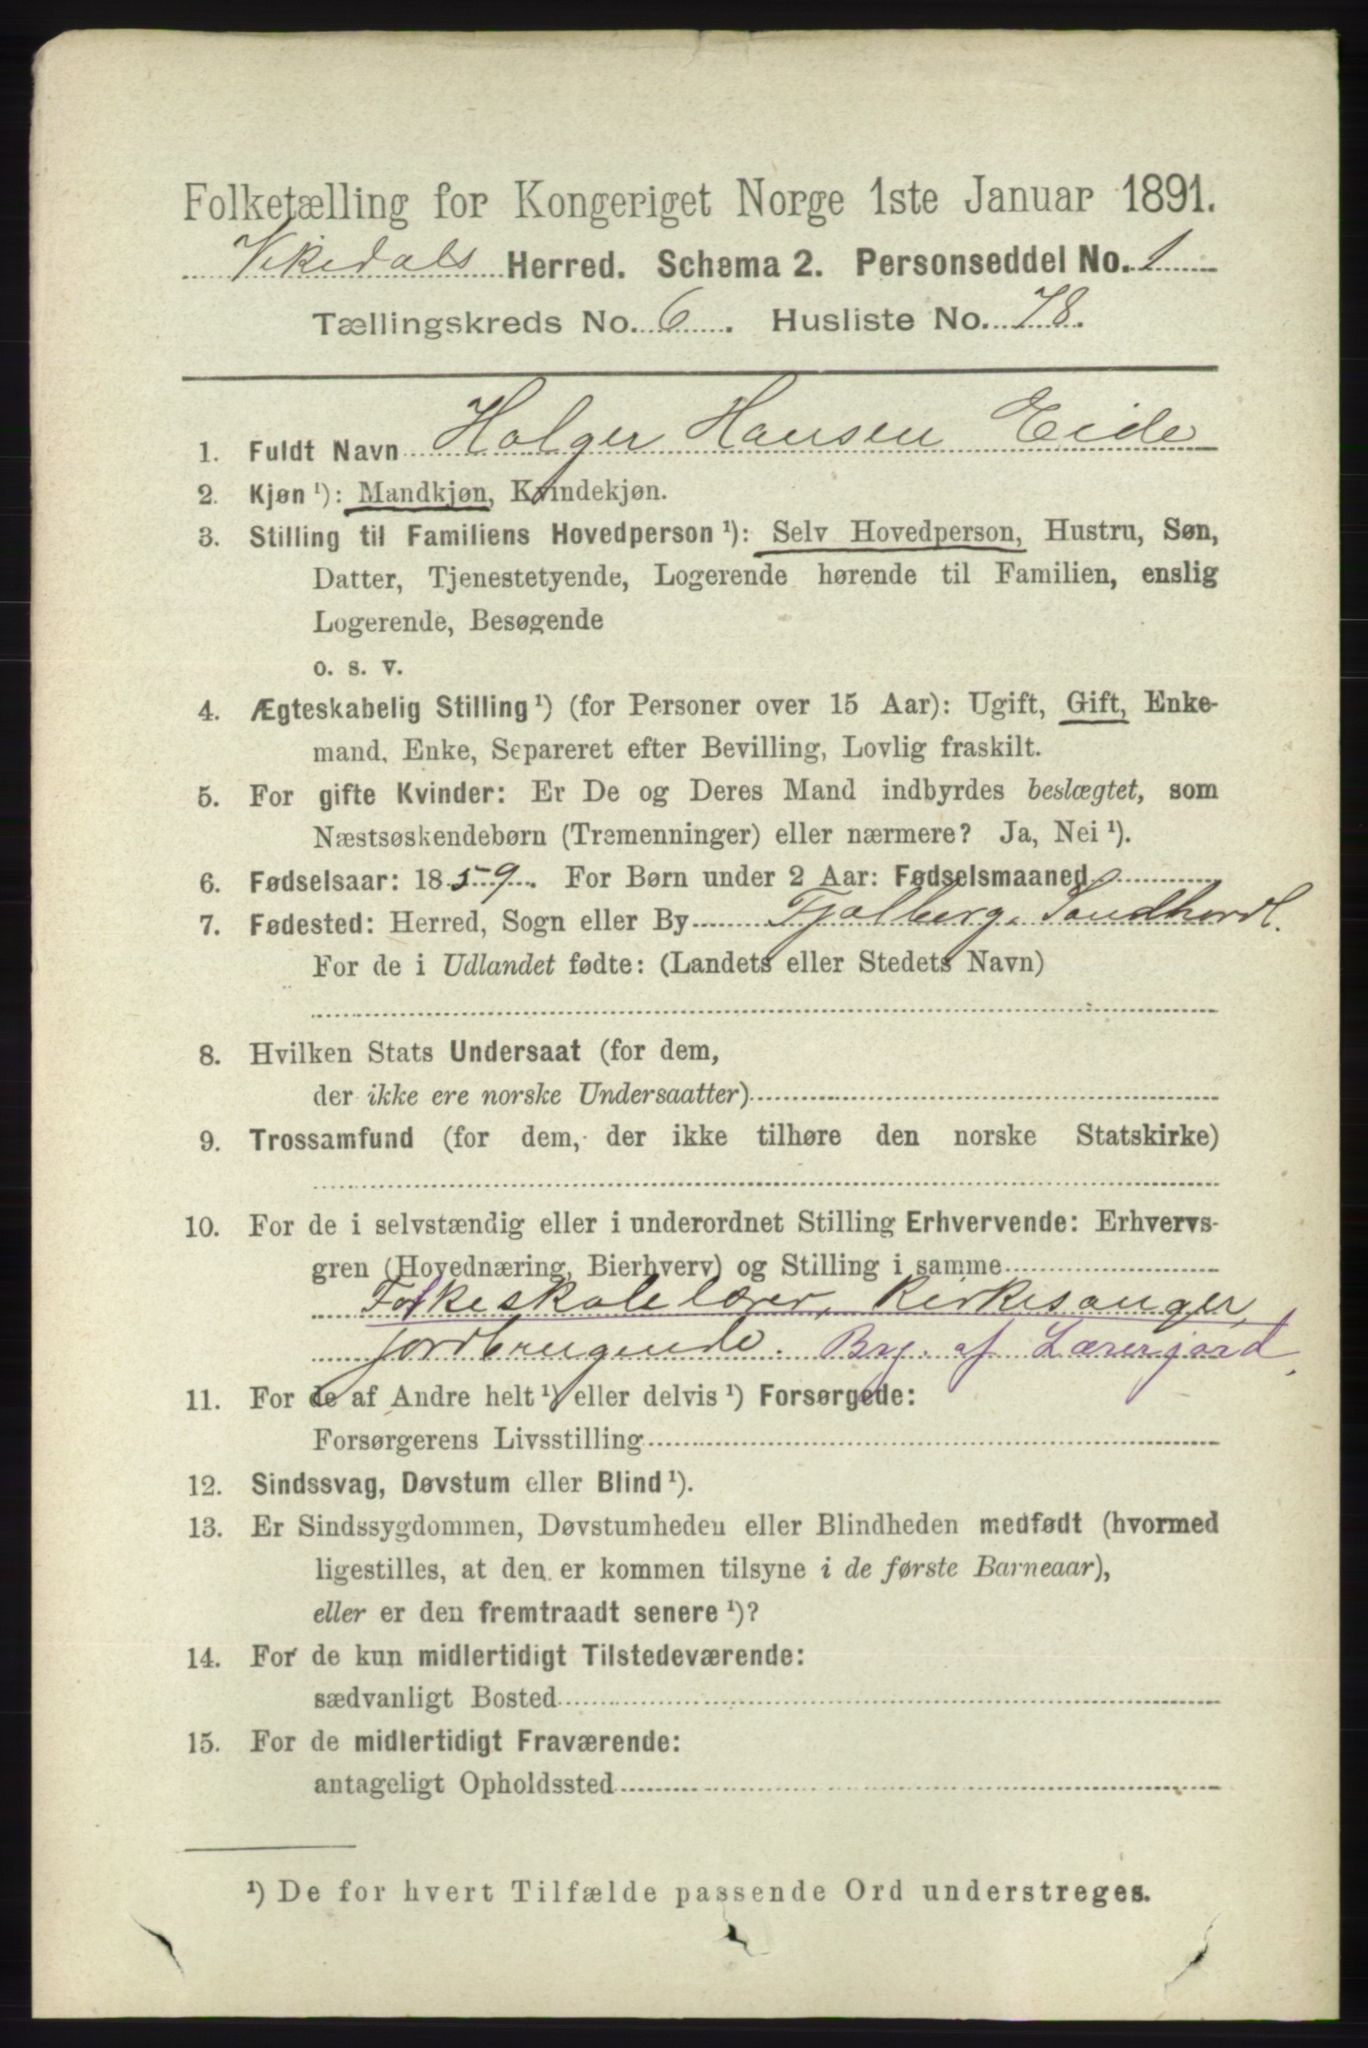 Folketælling for Kongeriget Norge 1ste Januar 1891.
Vikedals Herred. Schema 2. Personseddel No. 1
Tællingskreds No. 6. Husliste No. 78.
1. Fuldt Navn Holger Hansen Eide
2. Kjøn ¹): Mandkjøn, Kvindekjøn.
3. Stilling til Familiens Hovedperson ¹): Selv Hovedperson, Hustru, Søn,
Datter, Tjenestetyende, Logerende hørende til Familien, enslig
Logerende, Besøgende
o. s. v.
4. Ægteskabelig Stilling ¹) (for Personer over 15 Aar): Ugift, Gift, Enke-
mand, Enke, Separeret efter Bevilling, Lovlig fraskilt.
5. For gifte Kvinder: Er De og Deres Mand indbyrdes beslægtet, som
Næstsøskendebørn (Tremenninger) eller nærmere? Ja, Nei ¹).
6. Fødselsaar: 1859. For Børn under 2 Aar: Fødselsmaaned
7. Fødested: Herred, Sogn eller By Fjelberg, Søndhordl.
For de i Udlandet fødte: (Landets eller Stedets Navn)
8. Hvilken Stats Undersaat (for dem,
der ikke ere norske Undersaatter)
9. Trossamfund (for dem, der ikke tilhøre den norske Statskirke)
10. For de i selvstændig eller i underordnet Stilling Erhvervende: Erhvervs-
gren (Hovednæring, Bierhverv) og Stilling i samme
Folkeskolelærer, Kirkesanger,
jordbrugende. Brg. af Lærerjord.
11. For de af Andre helt ¹) eller delvis ¹) Forsørgede:
Forsørgerens Livsstilling
12. Sindssvag, Døvstum eller Blind ¹).
13. Er Sindssygdommen, Døvstumheden eller Blindheden medfødt (hvormed
ligestilles, at den er kommen tilsyne i de første Barneaar),
eller er den fremtraadt senere ¹)?
14. For de kun midlertidigt Tilstedeværende:
sædvanligt Bosted
15. For de midlertidigt Fraværende:
antageligt Opholdssted
¹) De for hvert Tilfælde passende Ord understreges.